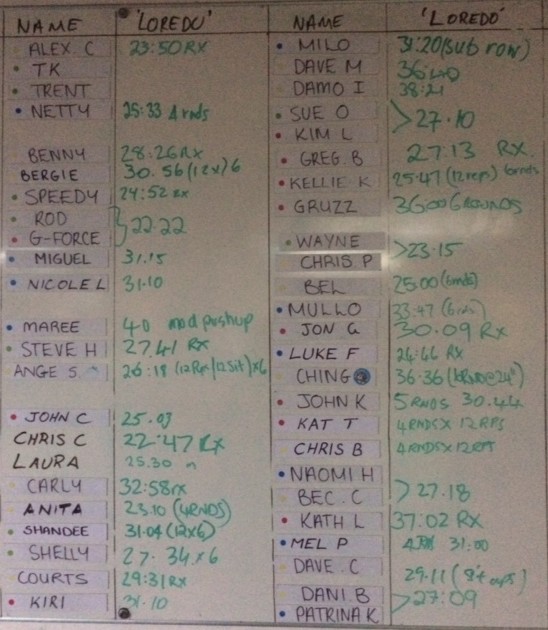 NAME 'LOREDO'
ALEX. C 23:50 RX
TK
TRENT
NETTY 25:33 4 rnds
BENNY 28:26 RX
BERGIE 30.56 (12x)6
SPEEDY 24:52 RX
ROD
G-FORCE } 22:22
MIGUEL 31.15
NICOLE L 31.10
MAREE 40 mod pushup
STEVE H 27.41 RX
ANGE S. 26:18 (12Rx/12Sit)x6
JOHN C 25.03
CHRIS C 22:47 Rx
LAURA 25.30
CARLY 32:58rx
ANITA 23.10 (4RNDS)
SHANDEE 31.04 (12x6)
SHELLY 27.34 x 6
COURTS 29:31 RX
KIRI 31.10
NAME 'LOREDO'
MILO 31:20 (sub row)
DAVE M 36:40
DAMO I 38:21
SUE O
KIM L > 27.10
GREG. B 27.13 RX.
KELLIE K 25.47 (12reps) 6rnds
GRUZZ 36:00 6ROUNDS
WAYNE
CHRIS. P > 23.15
BEL 25:00 (6rnds)
MULLO 33:47
JON G 30.09 RX
LUKE F RX
CHING 36.36
JOHN K 5 RNDS 30.44
KAT T 4 RNDS x 12 RPS
CHRIS B 4 RNDS x 12 RPS
NAOMI H
BEC. C > 27.18
KATH L 37.02 RX
MEL P 31:00
DAVE. C 29.11
DANI. B
PATRINA K > 27:09